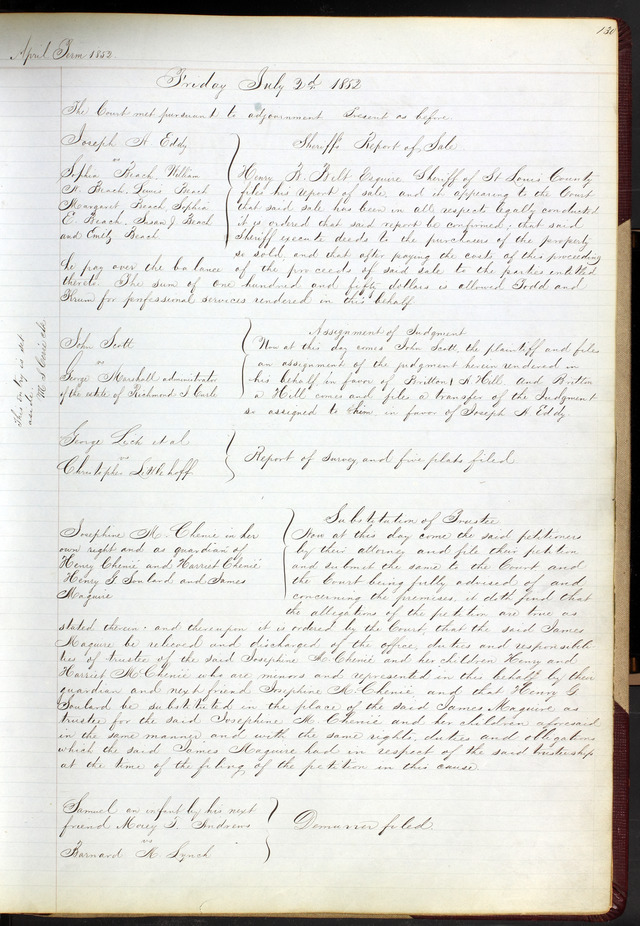 130
April Term 1852.
Friday July 2d 1852
The Court met pursuant to adjournment Present as before.
Joseph H Eddy
vs
Sophia Beach, William
H. Beach, Lewis Beach
Margaret Beach, Sophia
E. Beach, Susan J Beach
and Emily Beach
Sheriff's Report of Sale.
Henry B. Belt Esquire Sheriff of St Louis County
filed his report of sale, and it appearing to the Court
that said sale has been in all respects legally conducted
it is ordered that said report be confirmed; that said
Sheriff execute deeds to the purchasers of the property
so sold, and that after paying the costs of this proceeding
he pay over the balance of the proceeds of said sale to the parties entitled
thereto. The sum of one hundred and fifty dollars is allowed Todd and
Krum for professional services rendered in this behalf
This entry is set
aside
John Scott
vs
George Marshall administrator
of the estate of Richmond J Curle
Assignment of Judgment
Now at this day comes John Scott, the plaintiff and files
an assignment of the judgment herein rendered in
his behalf in favor of Britton A Hill and Britton
A Hill comes and files a transfer of the Judgment
so assigned to him, in favor of Joseph H Eddy.
George Lich et al
vs
Christopher
Report of survey and five plats filed
Josephine M. Chenie in her
own right and as guardian of
Henry Chenie and Harriet Chenié
Henry G Soulard and James
Maguire
Substitution of Trustee
Now at this day come the said petitioners
by their attorney and file their petition
and submit the same to the Court and
the Court being fully advised of and
concerning the premises, it doth find that
the allegations of the petition are true as
stated therein and thereupon it is ordered by the Court, that the said James
Maguire be relieved and discharged of the office, duties and responsibili
ties of trustee of the said Josephine M. Chenié and her children Henry and
Harriet M. Chenié who are minors and represented in this behalf by their
guardian and next friend Josephine M. Chenié, and that Henry G
Soulard be substituted in the place of the said James Maguire as
trustee for the said Josephine M Chenié and her children aforesaid
in the same manner and with the same rights, duties and obligations
which the said James Maguire had in respect of the said trusteeship
at the time of the filing of the petition in this cause.
Samuel an infant by his next
friend Macey T. Andrews
vs
Barnard M Lynch
Demurrer filed.